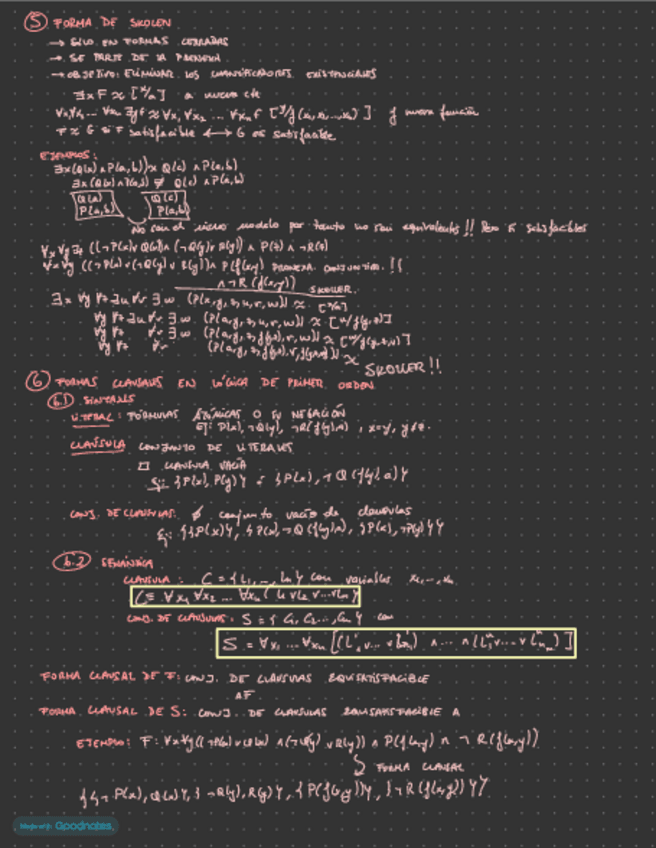 ⑤ FORMA DE SKOLEN
→ SOLO EN FORMAS CERRADAS
→ SE PARTE DE LA PRENEXA
→ OBJETIVO: ELIMINAR LOS CUANTIFICADORES EXISTENCIALES
∃xF ≈ [x/a] a nueva cte
∀x₁∀x₂ ... ∀xₙ ∃yF ≈ ∀x₁ ∀x₂ ... ∀xₙ F [y/f(x₁,x₂...xₙ)] f nueva función
F ≈ G si F satisfacible ↔ G es satisfacible
EJEMPLOS:
∃x(Q(x) ∧ P(a,b)) ≈ Q(c) ∧ P(a,b)
Q(c) ∧ P(a,b)
Q(a) Q(c)
P(a,b) P(a,b)
No son el mismo modelo por tanto no son equivalentes!! Pero
((¬P(x) ∨ Q(x)) ∧ (¬Q(y) ∨ R(y)) ∧ P(z) ∧ ¬R(z)
PRENEXA CONJUNTIVA !!
∧ ¬R(f(x,y)) SKOLEM.
∃x ∀y ∀z ∃u ∀v ∃w (P(x,y,z,u,v,w)) ≈ [x/a]
∀y ∀z ∃u ∀v ∃w (P(a,y,z,u,v,w)) ≈ [u/f(y,z)]
∀y ∀z ∀v ∃w
∀y ∀z ∀v
≈ SKOLEM!!
⑥ FORMAS CLAUSALES EN LÓGICA DE PRIMER ORDEN
6.1 SINTAXIS
LITERAL: FÓRMULAS ATÓMICAS O SU NEGACIÓN
Ej: P(x), ¬Q(y), ¬R(f(y),a), x=y, y≠z.
CLAÚSULA CONJUNTO DE LITERALES
□ CLAUSULA VACÍA
Ej: {P(x), P(y)} ; {P(x), ¬Q(f(y),a)}
CONJ. DE CLAUSULAS. ∅ conjunto vacío de clausulas
Ej: {{P(x)}, {P(x), ¬Q(f(y),a)}, {P(x), ¬P(y)}}
6.2 SEMÁNTICA
CLAUSULA: C = {L₁,..., Lₙ} con variables x₁,...,xₙ.
C ≡ ∀x₁ ∀x₂ ... ∀xₙ (L₁ ∨ L₂ ∨ ... ∨ Lₙ)
CONJ. DE CLAUSULAS: S = {C₁, C₂..., Cₙ} con
S = ∀x₁ ... ∀xₘ
FORMA CLAUSAL DE F: CONJ. DE CLAUSULAS EQUISATISFACIBLE
A F
FORMA CLAUSAL DE S: CONJ. DE CLAUSULAS EQUISATISFACIBLE A
EJEMPLO: F: ∀x∀y((¬P(x) ∨ Q(x)) ∧ (¬Q(y) ∨ R(y)) ∧ P(f(x,y)) ∧ ¬R(f(x,y)))
FORMA CLAUSAL
{{¬P(x), Q(x)}, {¬R(y), R(y)}, {P(f(x,y))}, {¬R(f(x,y))}}
Made with Goodnotes